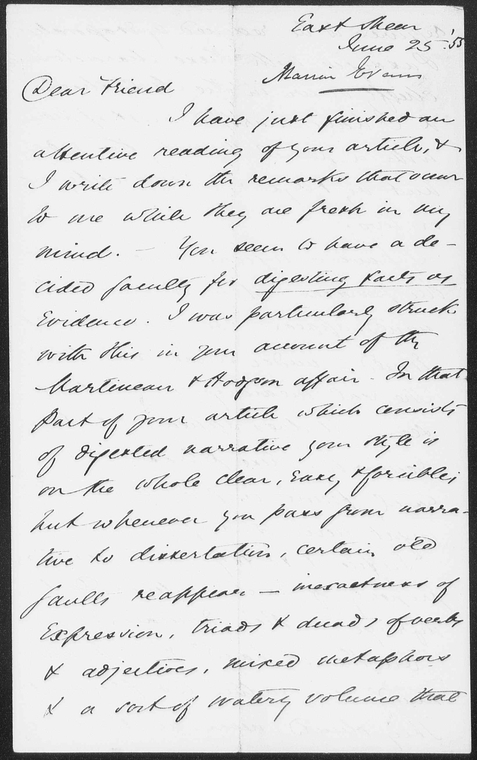 East Sheen
June 25. '55
Marian Evans
Dear Friend
I have just finished an
attentive reading of your article, &
I write down the remarks that occur
to me while they are fresh in my
mind. — You seem to have a de-
cided faculty for digesting facts as
Evidence. I was particularly struck
with this in your account of the
Martineau & Hodgson affair. In that
Part of your article which consists
of digested narrative your style is
on the whole clear, easy & forcible;
but whenever you pass from narra-
tive to dissertation, certain old
faults reappear — inexactness of
Expression, triads & duads of verbs
& adjectives, mixed metaphors
& a sort of watery volume that